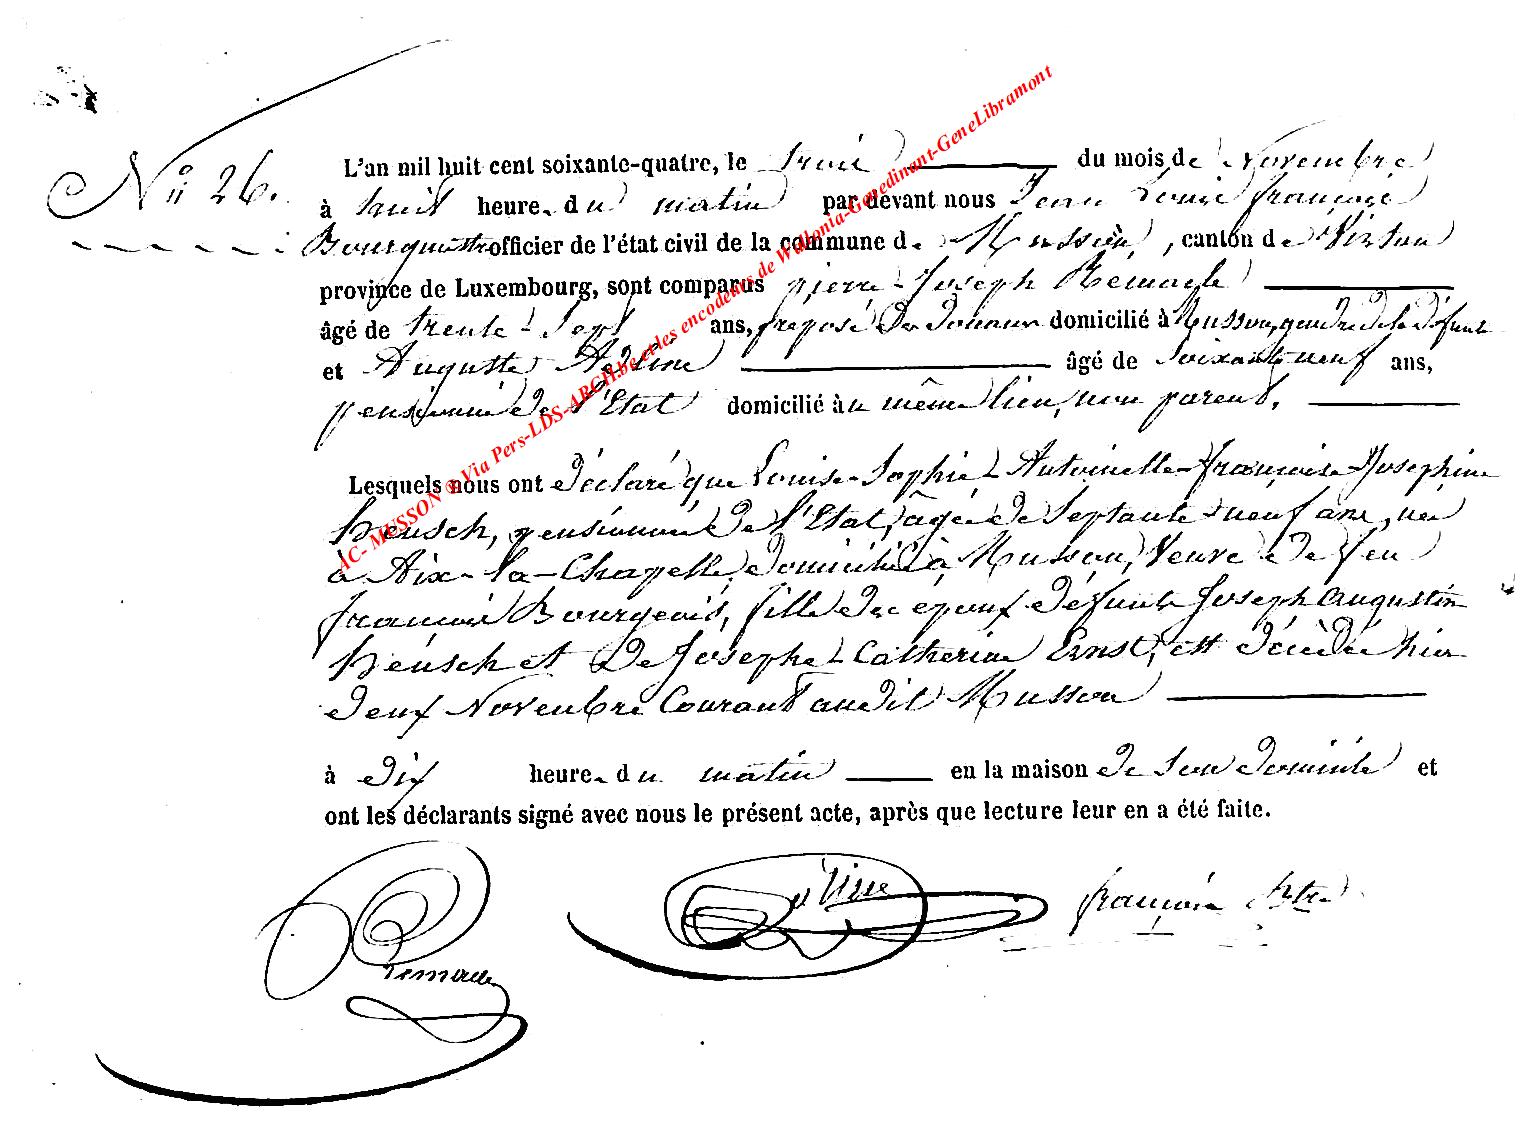 N° 26.
L'an mil huit cent soixante-quatre, le trois du mois de Novembre
à huit heure. du matin par devant nous Jean Louis François
officier de l'état civil de la commune de Musson, canton de Virton
province de Luxembourg, sont comparus pierre-Joseph Remacle
âgé de trente-Sept ans, préposé des Douanes domicilié à Musson, gendre de la défunte
et Auguste âgé de Soixante neuf ans,
pensionné de l'État domicilié au même lieu, non parent,
Lesquels nous ont déclaré que Louise-Sophie-Antoinette-françoise-Josephine
Heusch, pensionnée de l'Etat, âgée de Septante-neuf ans, née
à Aix-la-Chapelle, domiciliée à Musson, Veuve de feu
françois Bourgeois, fille des époux défunts Joseph Augustin
Heusch et de Josephe-Catherine Ernst, est décédée hier
deux Novembre Courant audit Musson
à dix heure. du matin en la maison de Son domicile et
ont les déclarants signé avec nous le présent acte, après que lecture leur en a été faite.
Remacle
françois
AC- MUSSON ® Via Pers-LDS-ARCH.be et les encodeurs de Wallonia-Genedinant-GeneLibramont